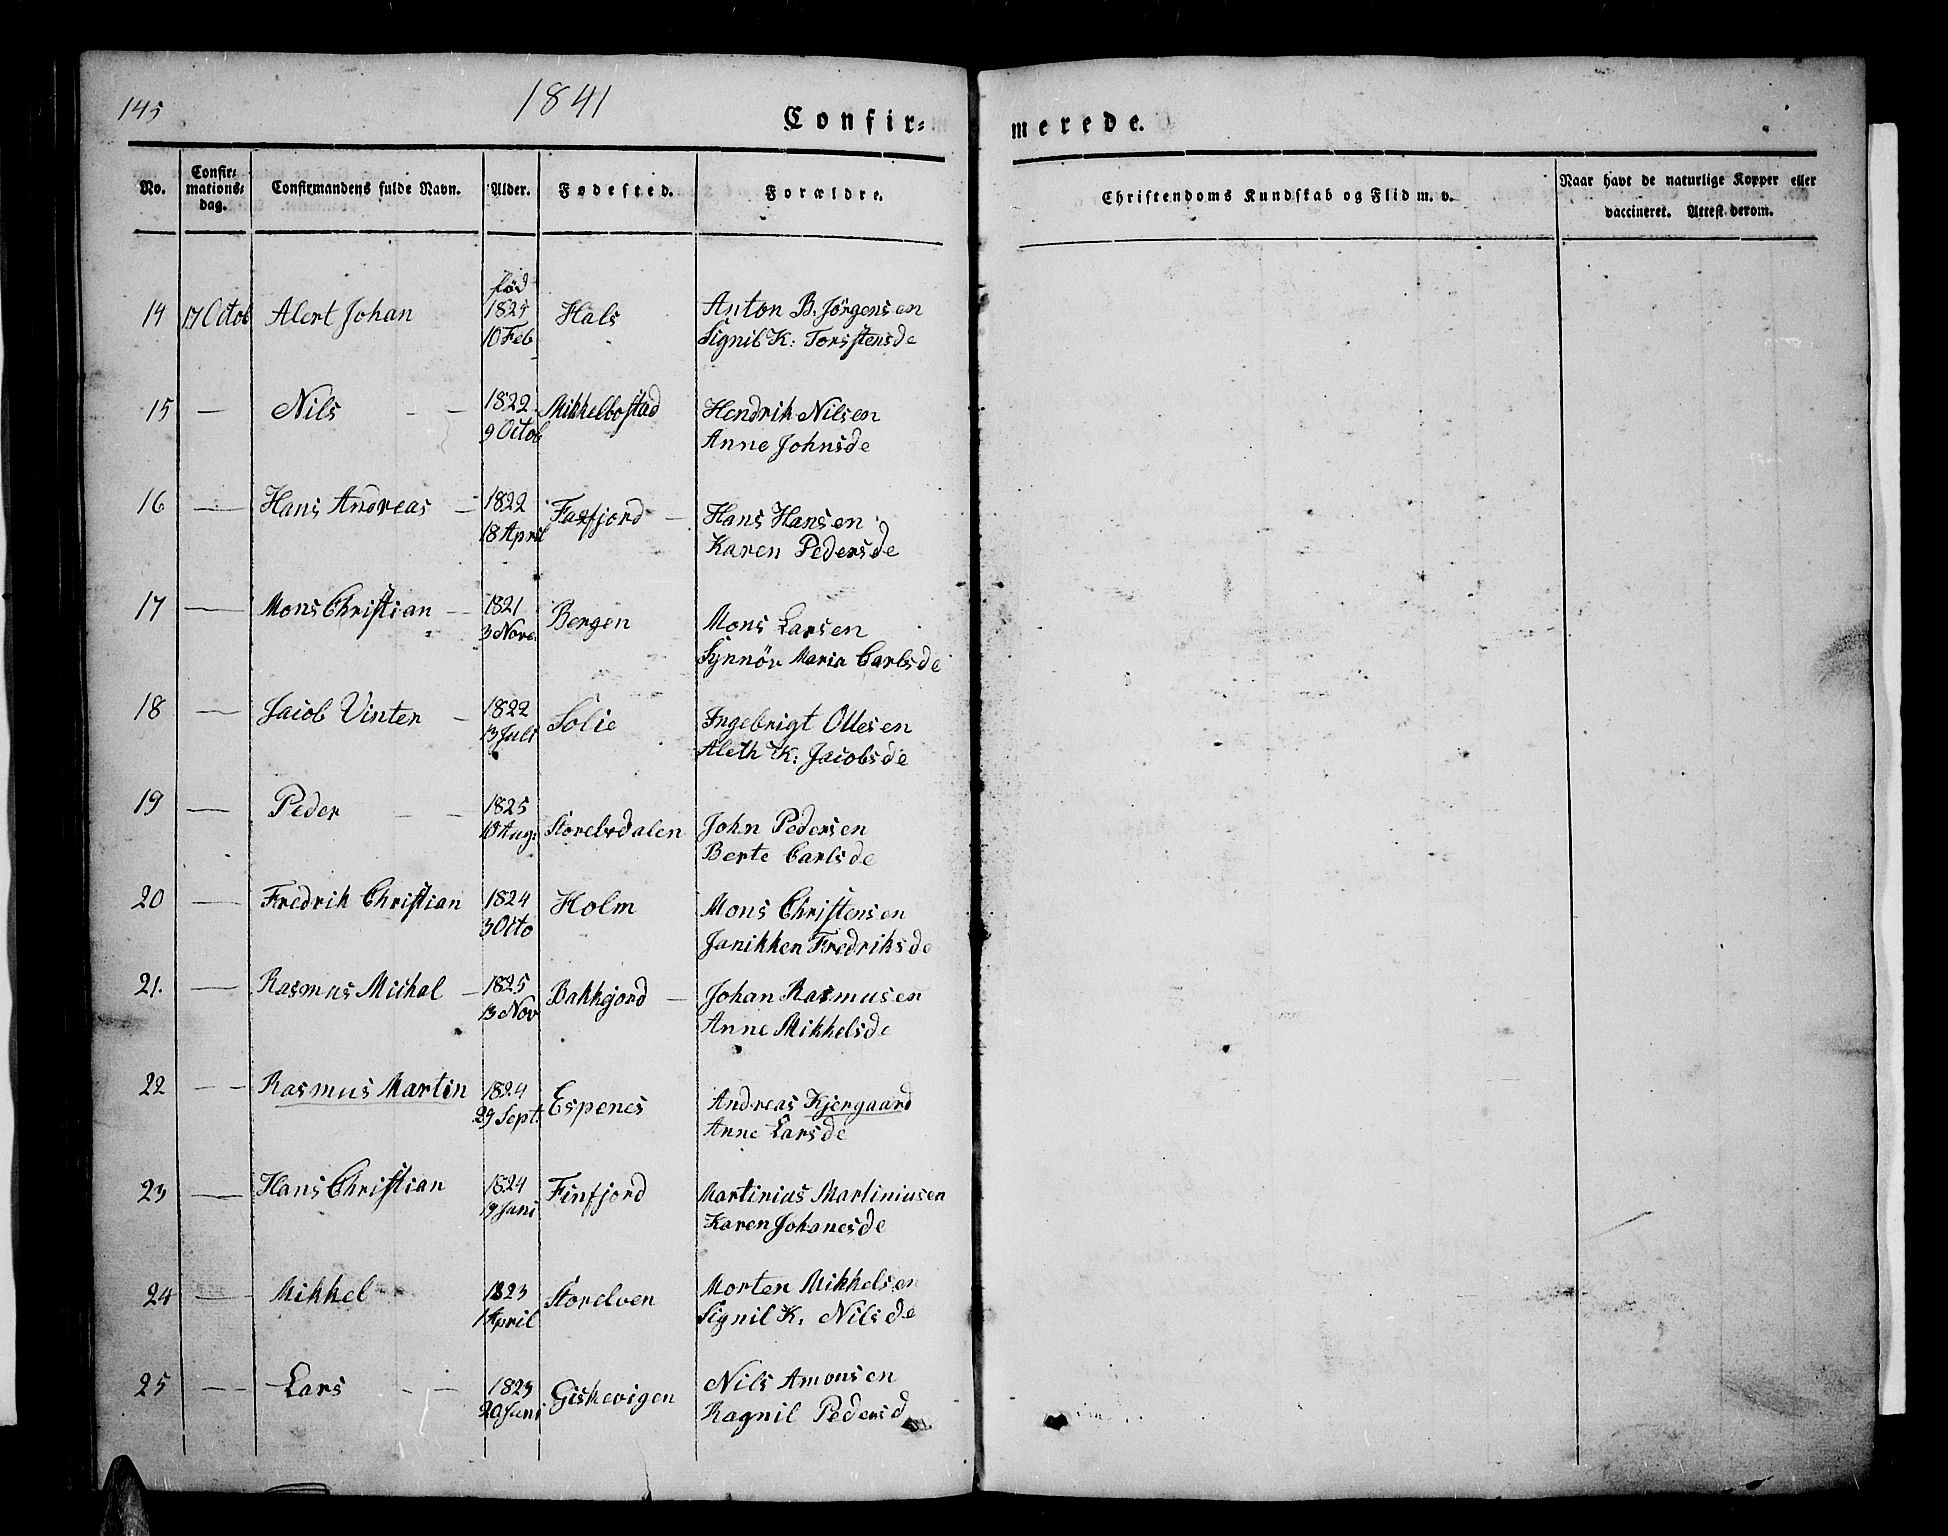 145
1841
Confir-
merede.
No.
Confir-
mations-
dag.
Confirmandens fulde Navn.
Alder.
Fødested.
Forældre.
Christendoms Kundskab og Flid m. v.
Naar havt de naturlige Kopper eller
vaccineret. Attest derom.
14 17 Octob Alert Johan fød 1825 10 Feb Hals Anton B. Jörgensen
Signil K: Torsstensde
15 — Nils — — 1822 9 Octob Mikkelbostad Hendrik Nilsen
Anne Johnsde
16 — Hans Andreas — 1822 18 April Faxfjord — Hans Hansen
Karen Pedersde
17 — Mons Christian — 1821 3 Nove. Bergen Mons Larsen
Synnöv Maria Carlsde
18 — Jacob Vinter — 1822 13 Juli Solie Ingebrigt Ollesen
Aleth K: Jacobsde
19 — Peder — — 1825 18 Aug: John Pedersen
Berte Carlsde
20 — Fredrik Christian 1824 3 Octo Holm Mons Christensen
Janikken Fredriksde
21. — Rasmus Michal — 1825 13 Nov Bakkejord — Johan Rasmusen
Anne Mikkelsde
22 — — Rasmus Martin 1824 29 Sept. Espenes Andreas Kjergaard
Anne Larsde
23 — Hans Christian 1824 19 Juni Finfjord Martinius Martiniusen
Karen Johanesde
24 — Mikkel 1823 1 April Storelven Morten Mikkelsen
Signil K. Nilsde
25 — — Lars — — 1823 20 Juni Giskevigen Nils Amonsen
Ragnil Pedersd